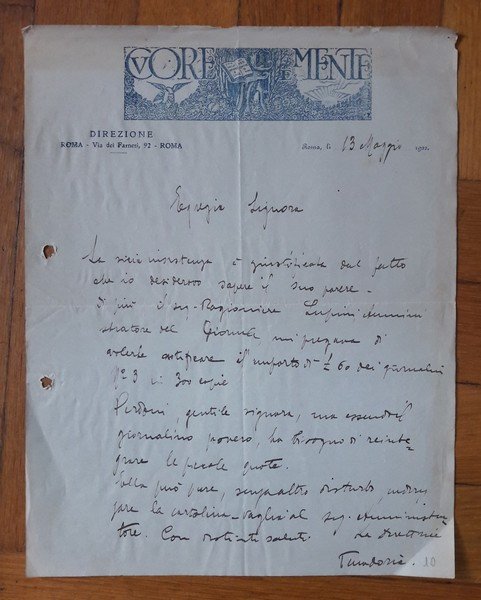 CVORE E MENTE
DIREZIONE
ROMA - Via dei Farnesi, 92 - ROMA
Roma, li 13 Maggio 192
Egregia Signora
La mia insistenza è giustificata dal fatto
che io desideravo sapere il suo parere -
di più il sig. Ragioniere Lupini Ammini
stratore del Giornale mi pregava di
l'importo di £ 60 dei giornalini
N° 3 in 300 copie
Perdoni, gentile signora, ma essendo il
giornalino povero, ha bisogno di reinte-
grare le piccole quote.
Ella può pure, senz'altro disturbo, indiriz
zare la cartolina-vaglia al sig. Amministra-
tore. Con distinti saluti. La direttrice
10